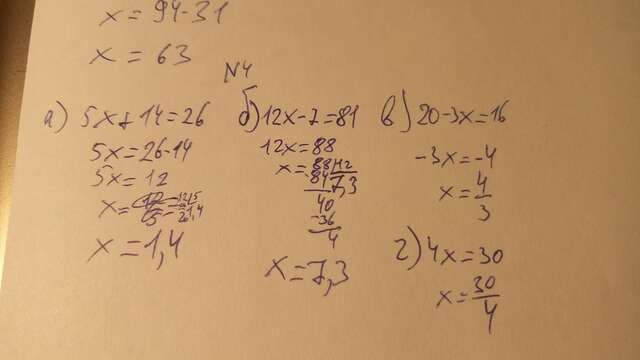 x = 94-31
x = 63
N4
а) 5x+14=26
5x=26-14
5x=12
x=
x=1,4
б) 12x-7=81
12x=88
x= 88 12
-84 7,3
40
-36
4
x=7,3
в) 20-3x=16
-3x=-4
x=4/3
г) 4x=30
x=30/4